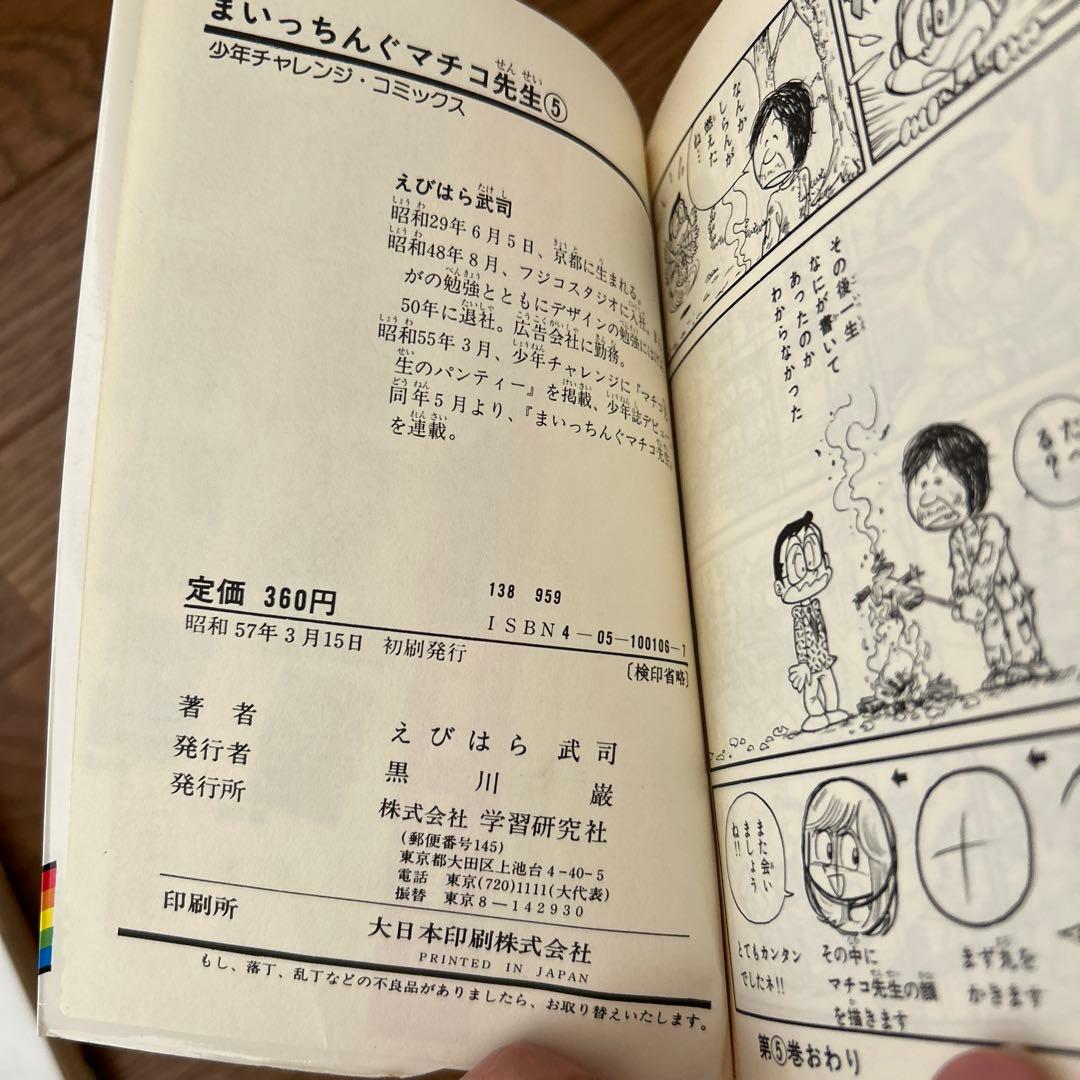 まいっちんぐマチコ先生⑤
少年チャレンジ・コミックス
えびはら武司
昭和29年6月5日、京都に生まれる。
昭和48年8月、フジコスタジオに入社。
がの勉強とともにデザインの勉強に
50年に退社。広告会社に勤務。
昭和55年3月、少年チャレンジに『マチコ
生のパンティー』を掲載、少年誌デビュー
同年5月より、『まいっちんぐマチコ先生
を連載。
定価 360円
138 959
ISBN4-05-100106-1
昭和57年3月15日 初刷発行
〔検印省略〕
著者 えびはら 武司
発行者 黒川 巌
発行所 株式会社 学習研究社
(郵便番号145)
東京都大田区上池台4-40-5
電話 東京(720)1111(大代表)
振替 東京8-142930
印刷所 大日本印刷株式会社
PRINTED IN JAPAN
もし、落丁、乱丁などの不良品がありましたら、お取り替えいたします。
なんか
しらんが
燃えた
ね…
その後一生
なにが書いて
あったのか
わからなかった
る?
まず丸を
かきます
その中に
マチコ先生の顔
を描きます
また会い
ましょう
ね!!
とてもカンタン
でしたネ!!
第⑤巻おわり